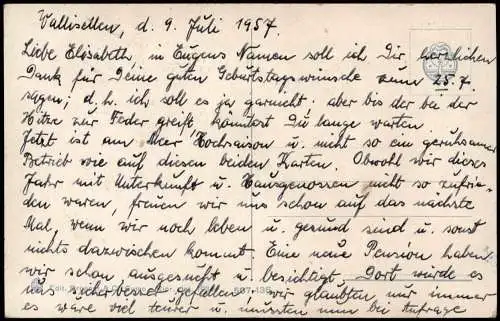 Wallisellen, d. 9. Juli 1957.
Liebe Elisabeth, in Eugens Namen soll ich Dir herzlichen
Dank für Deine guten Geburtstagswünsche zum 25.7.
sagen; d.h. ich soll es ja garnicht; aber bis der bei der
Hitze zur Feder greift könntest Du lange warten.
Jetzt ist am Meer Hochsaison u. nicht so ein geruhsamer
Betrieb wie auf diesen beiden Karten. Obwohl wir dieses
Jahr mit Unterkunft u. Hausgenossen nicht so zufrie-
den waren, freuen wir uns schon auf das nächste
Mal, wenn wir noch leben u. gesund sind u. sonst
nichts dazwischen kommt. Eine neue Pension haben
wir schon ausgesucht u. besichtigt. Dort würde es
uns sicher besser gefallen; wir glaubten nur immer
es wäre viel teurer u. mussten nun bei Anfrage